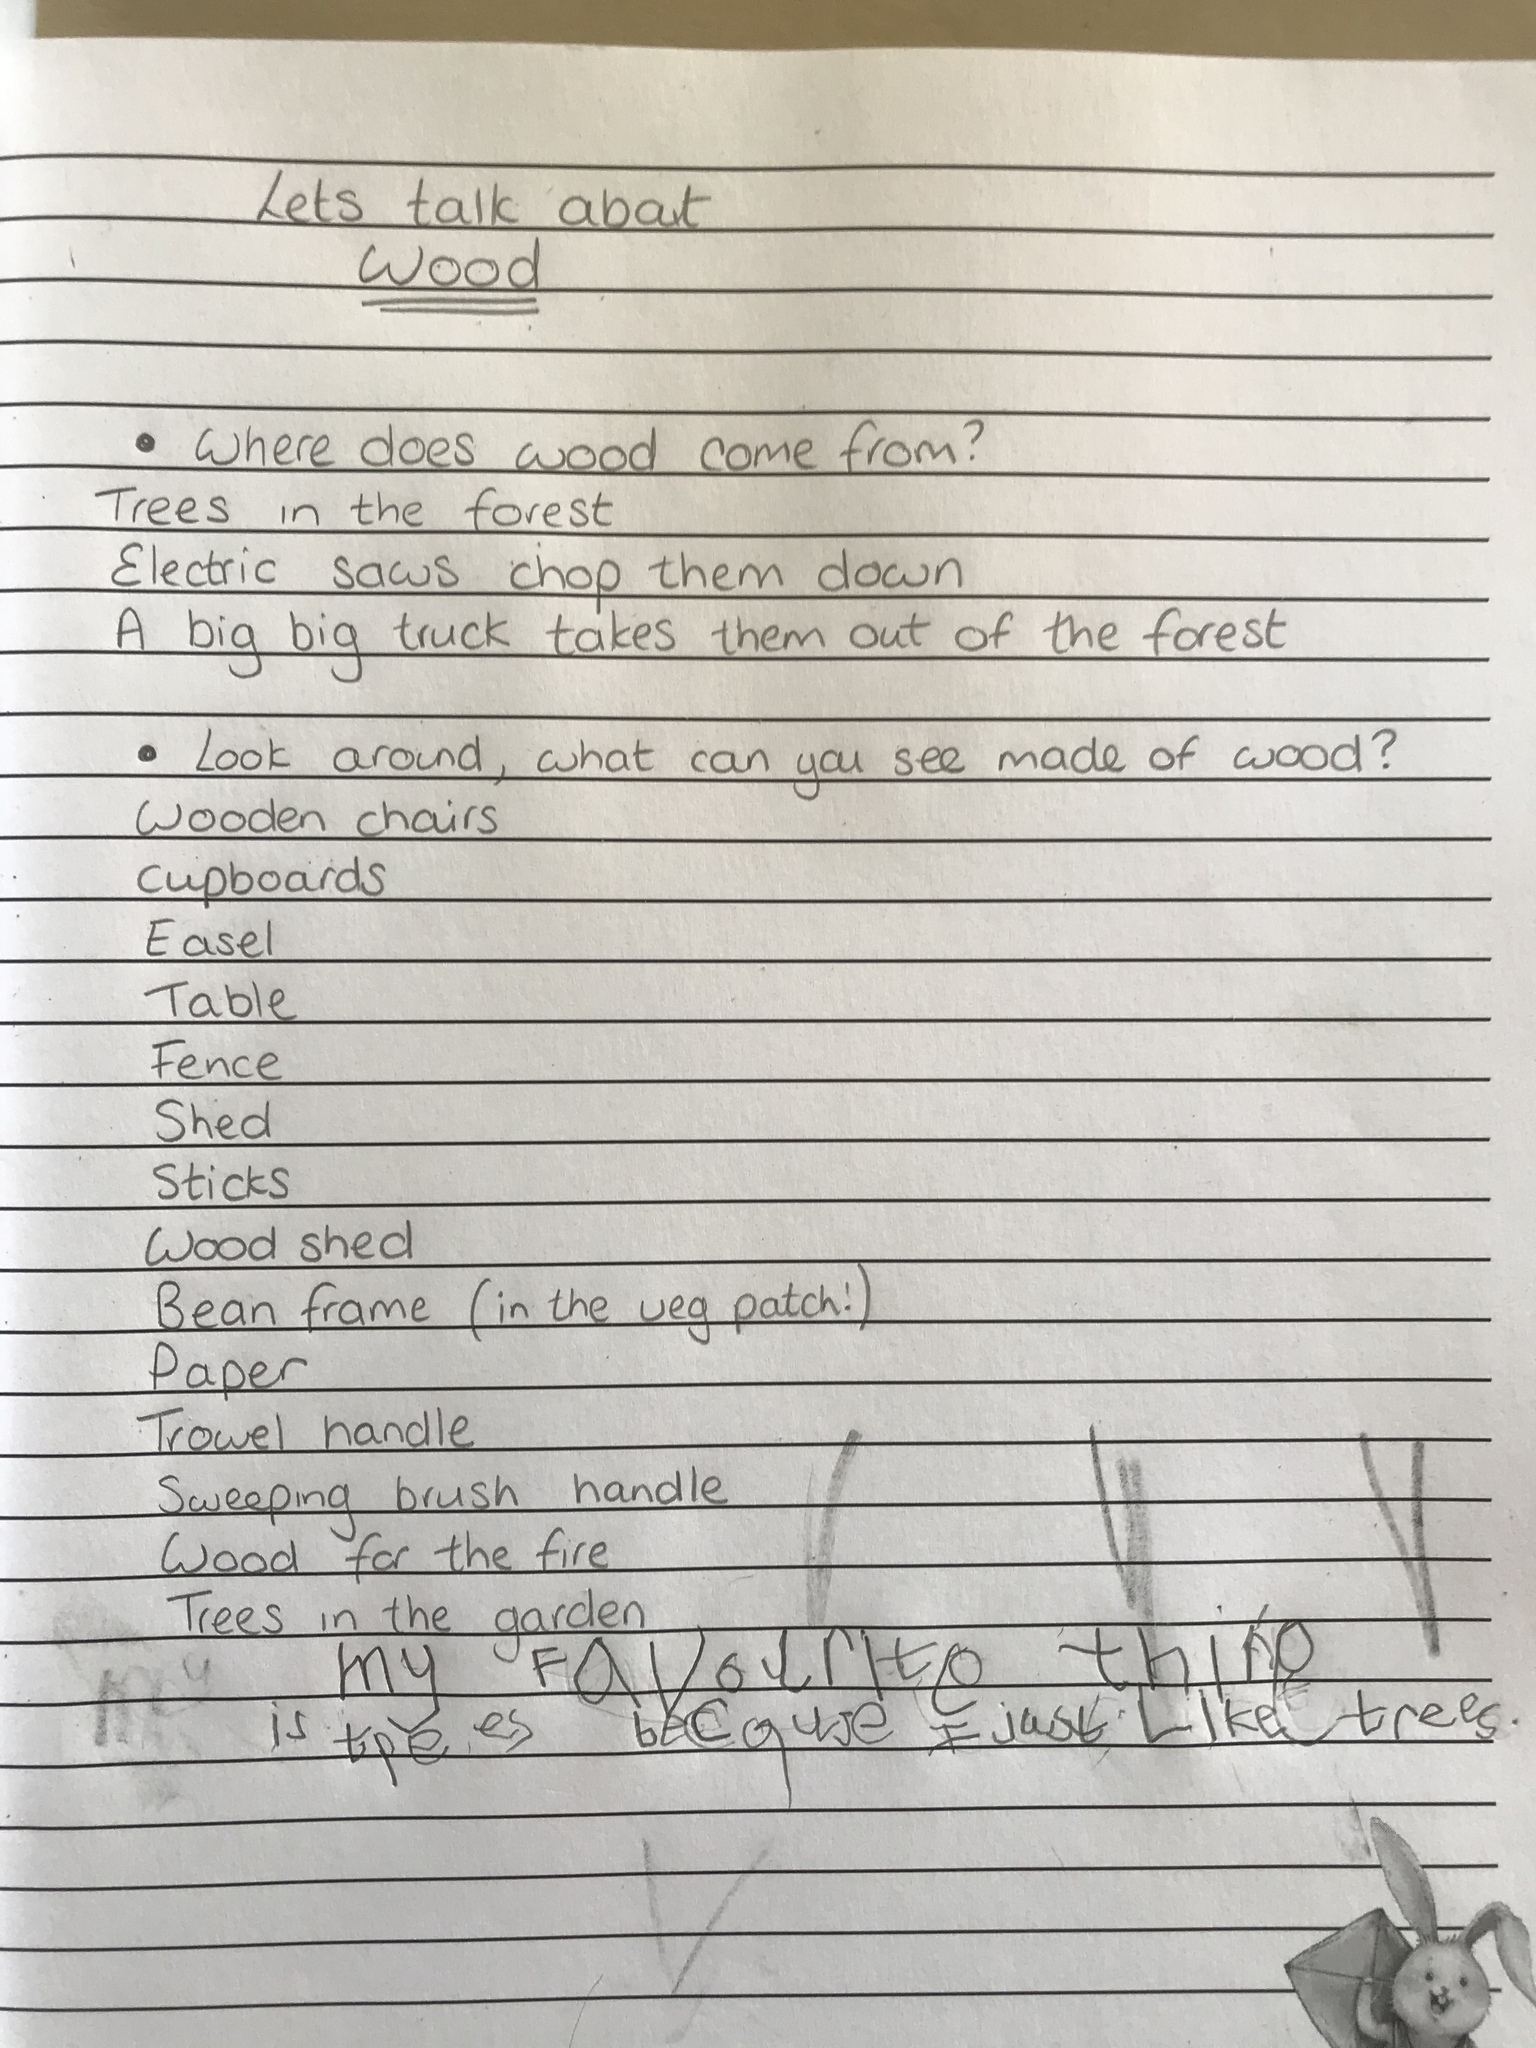 Lets talk about
Wood
• Where does wood come from?
Trees in the forest
Electric saws chop them down
A big big truck takes them out of the forest
• Look around, what can you see made of wood?
Wooden chairs
Cupboards
Easel
Table
Fence
Shed
Sticks
Wood shed
Bean frame (in the veg patch!)
Paper
Trowel handle
Sweeping brush handle
Wood for the fire
Trees in the garden
my FAVourite thing
is trees because I just Like trees.